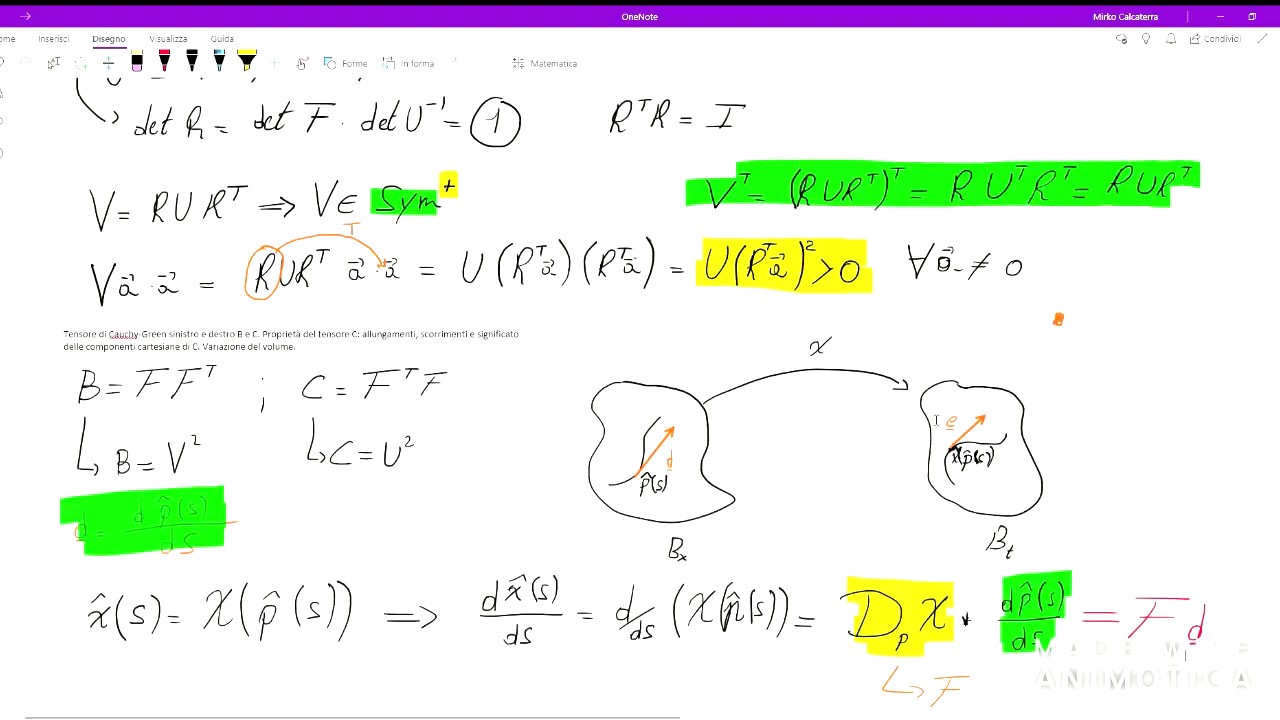 OneNote
Mirko Calcaterra
ome Inserisci Disegno Visualizza Guida
Condividi
Forme In forma Matematica
det R = det F · det U⁻¹ = 1 RᵀR = I
V = RURᵀ ⟹ V ∈ Sym⁺ Vᵀ = (RURᵀ)ᵀ = RUᵀRᵀ = RURᵀ
T
Va⃗ · a⃗ = RURᵀ a⃗ · a⃗ = U(Rᵀa⃗)(Rᵀa⃗) = U(Rᵀa⃗)² > 0 ∀a⃗ ≠ 0
Tensore di Cauchy-Green sinistro e destro B e C. Proprietà del tensore C: allungamenti, scorrimenti e significato
delle componenti cartesiane di C. Variazione del volume.
χ
B = FFᵀ ; C = FᵀF
↳ B = V² ↳ C = U²
d
e
p̂(s)
χ(p̂(s))
Bₓ
Bₜ
d = dp̂(s)/ds
x̂(s) = χ(p̂(s)) ⟹ dx̂(s)/ds = d/ds (χ(p̂(s)) = Dₚχ · dp̂(s)/ds = Fd
↳ F
MADE WITH
ANIMOTICA